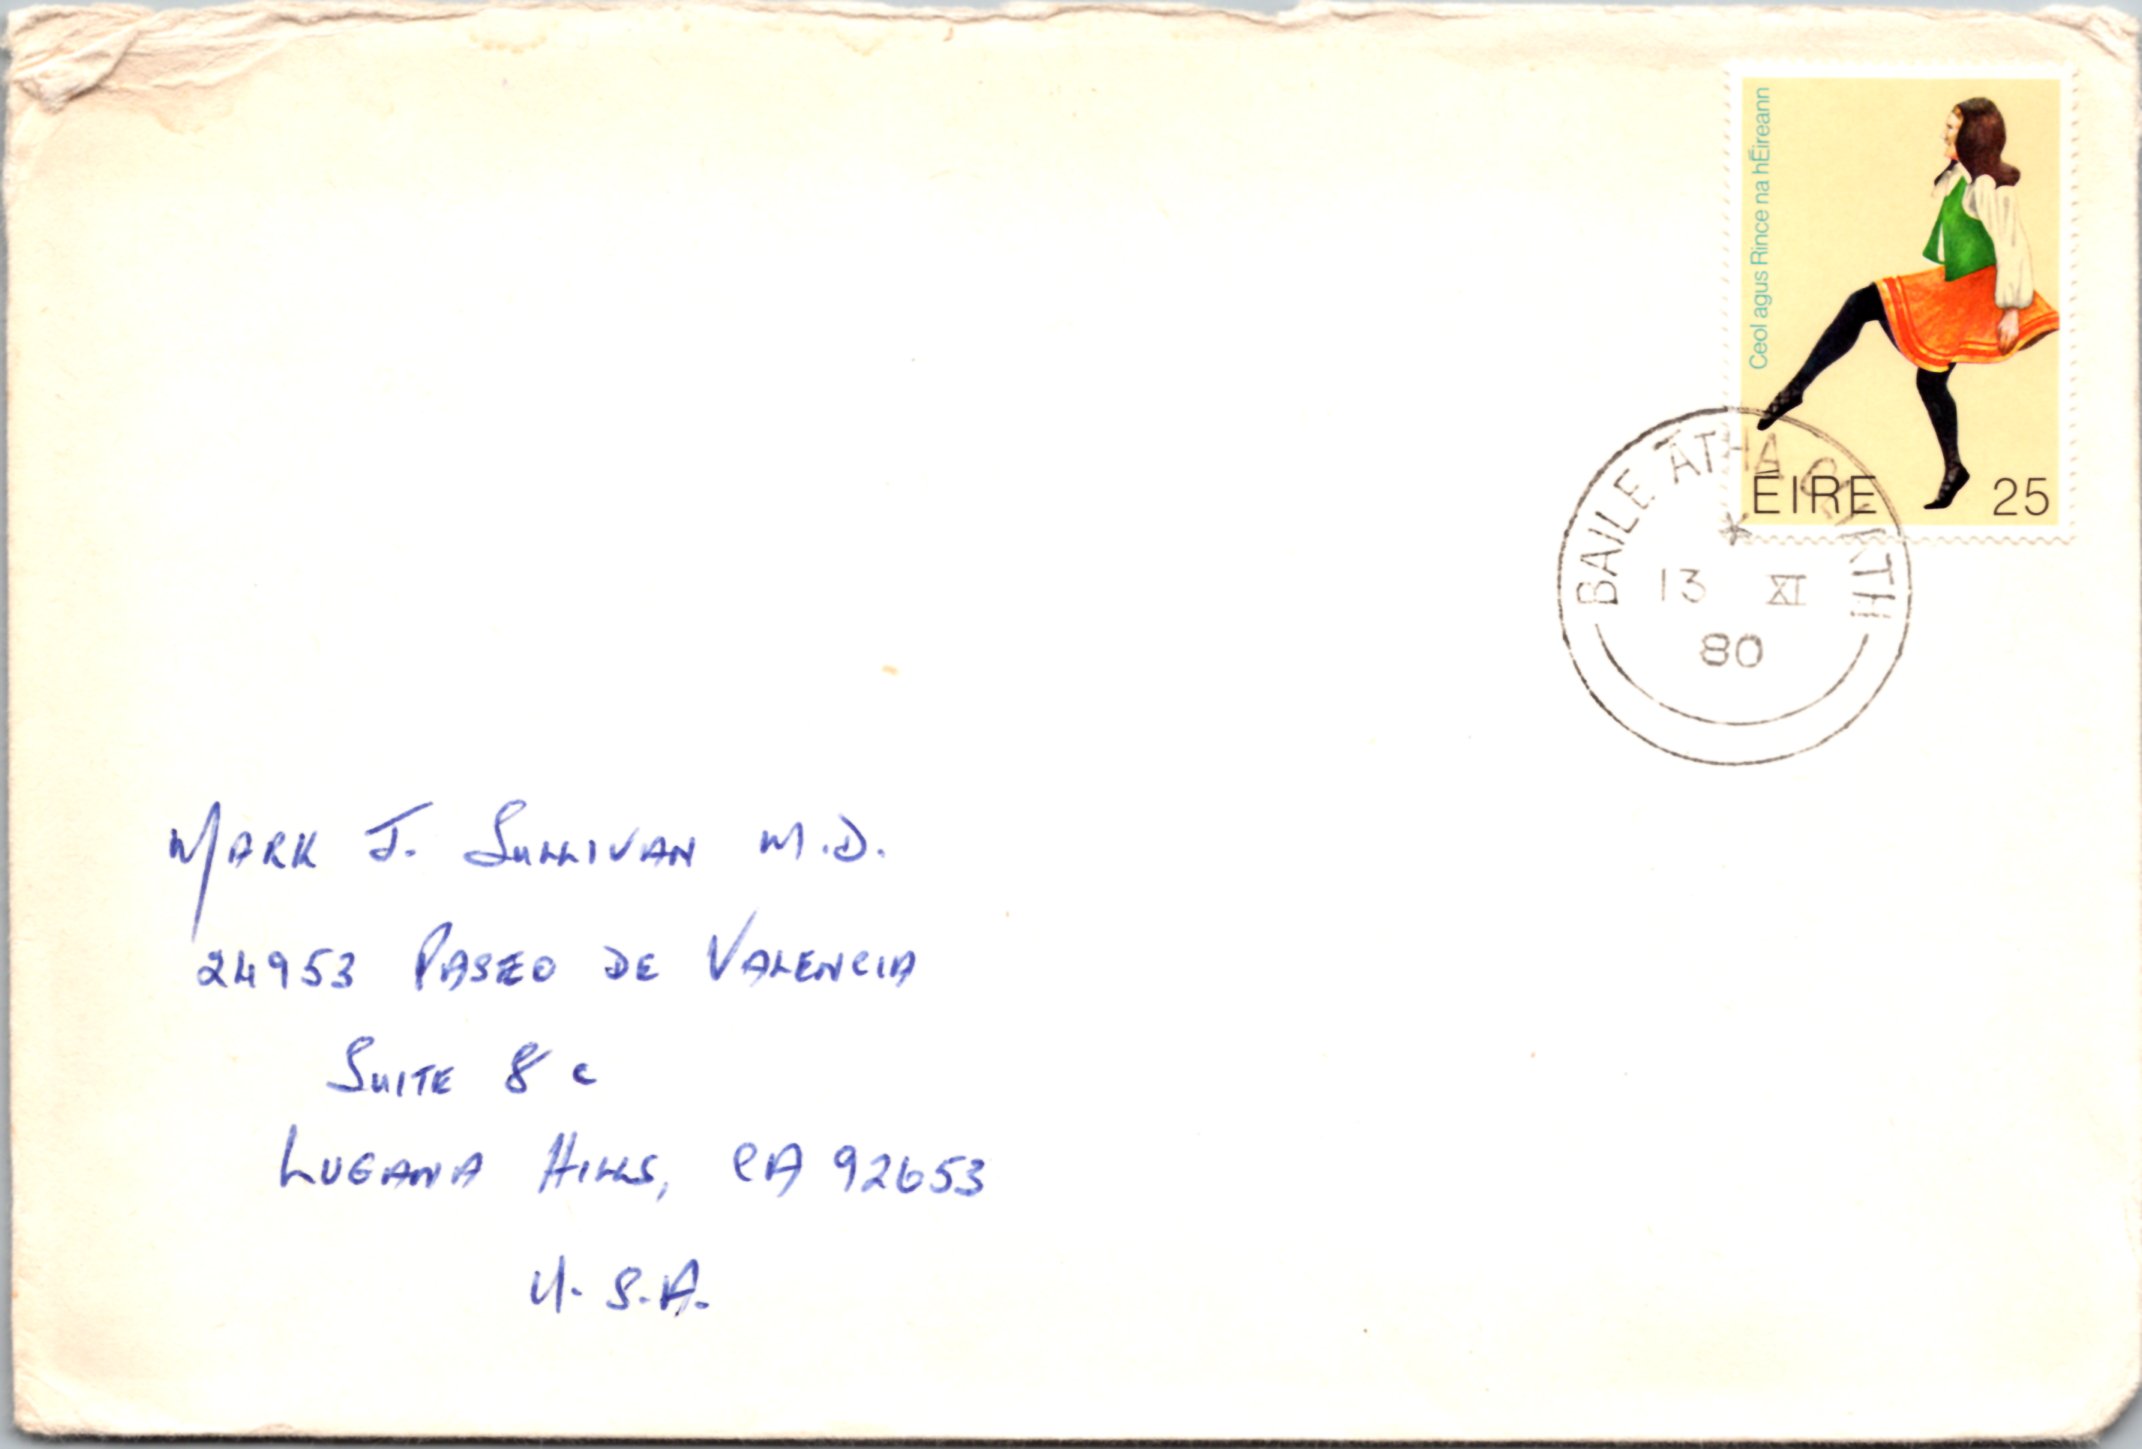 Ceol agus Rince na hÉireann
ÉIRE 25
BAILE ÁTHA CLIATH
13 XI
80
MARK J. SULLIVAN M.D.
24953 PASEO DE VALENCIA
SUITE 8 C
LUGANA HILLS, CA 92653
U.S.A.